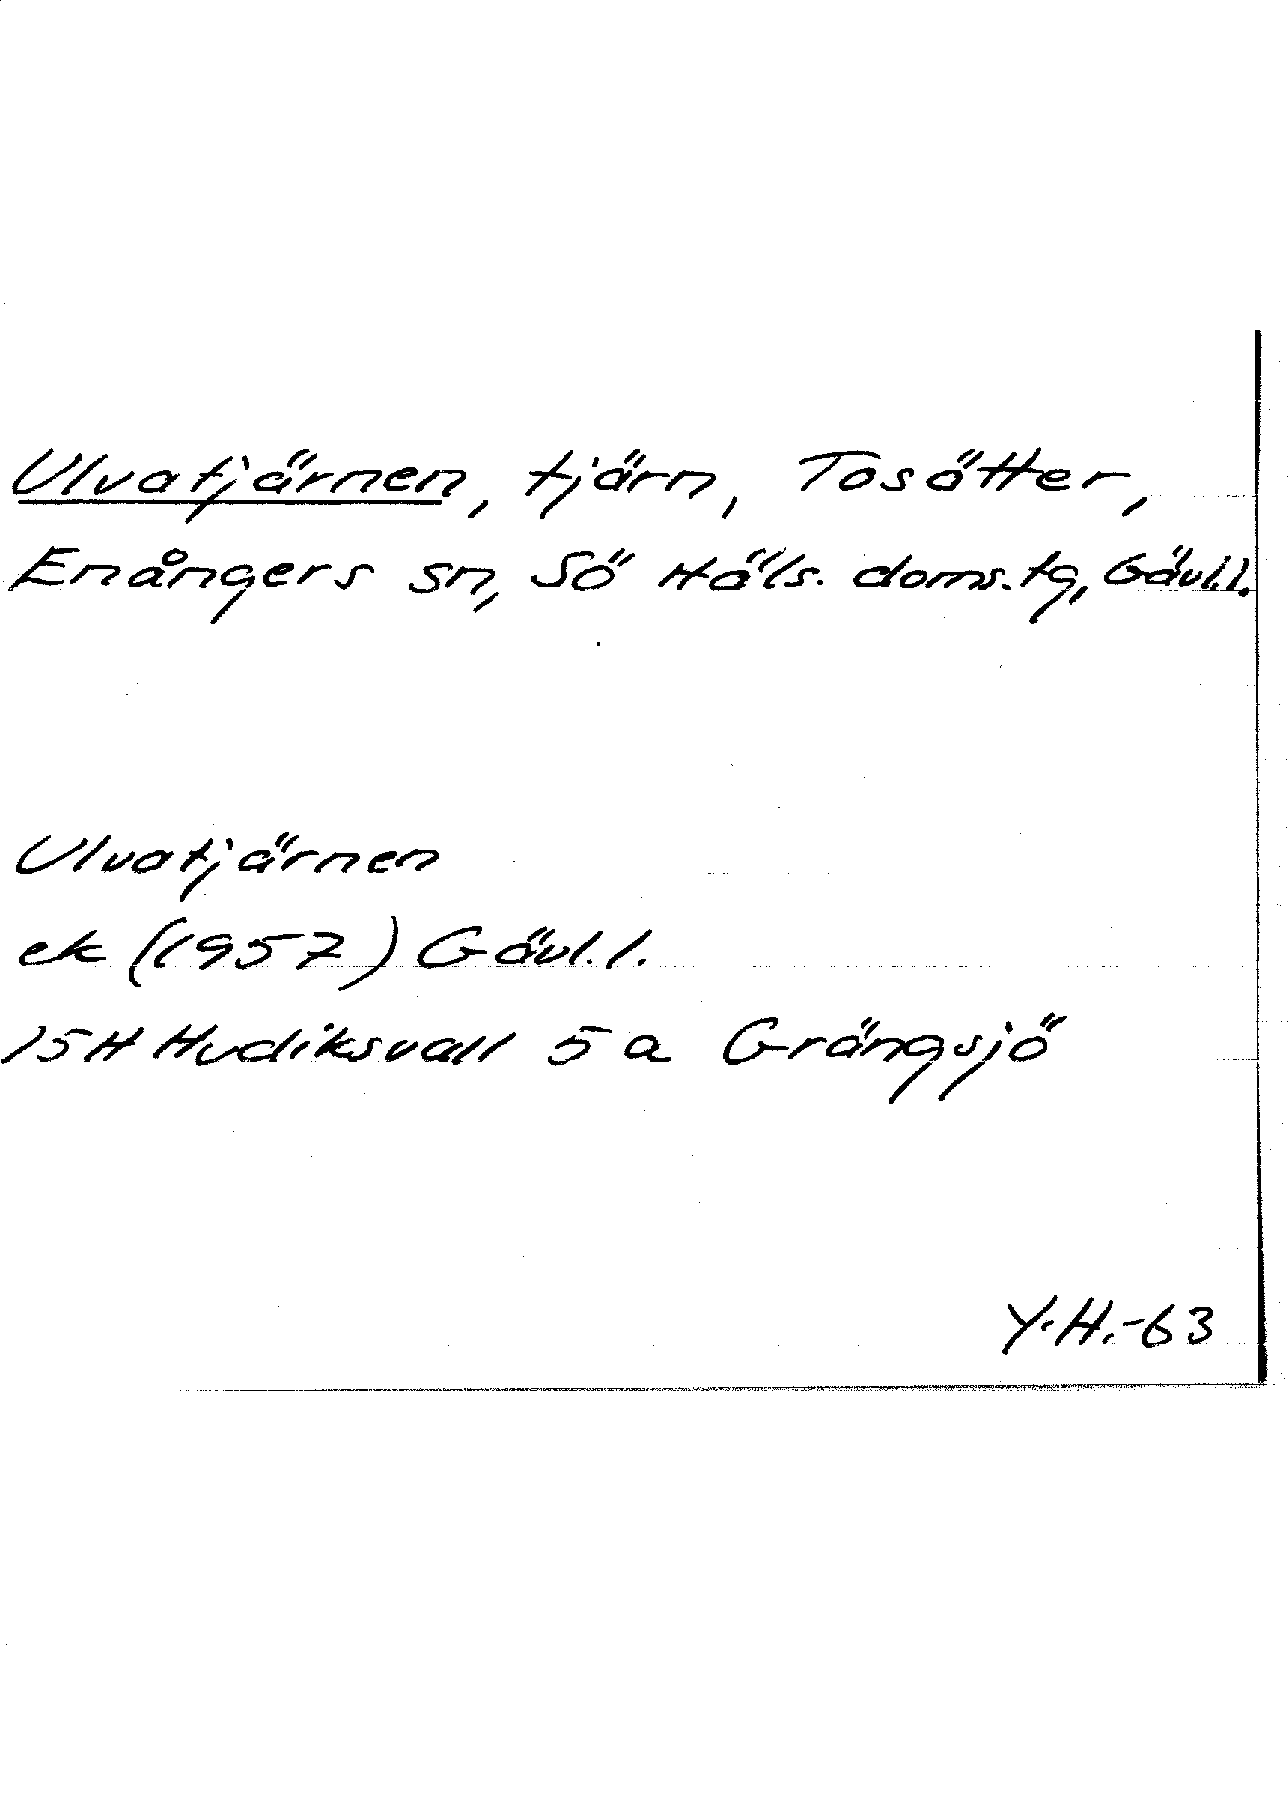 Ulvatjärnen, tjärn, Tosätter,
Enångers sn, Sö Häls. doms.tg, Gävl.l.
Ulvatjärnen
ek (1957) Gävl.l.
15H Hudiksvall 5 a Grängsjö
Y.H.-63